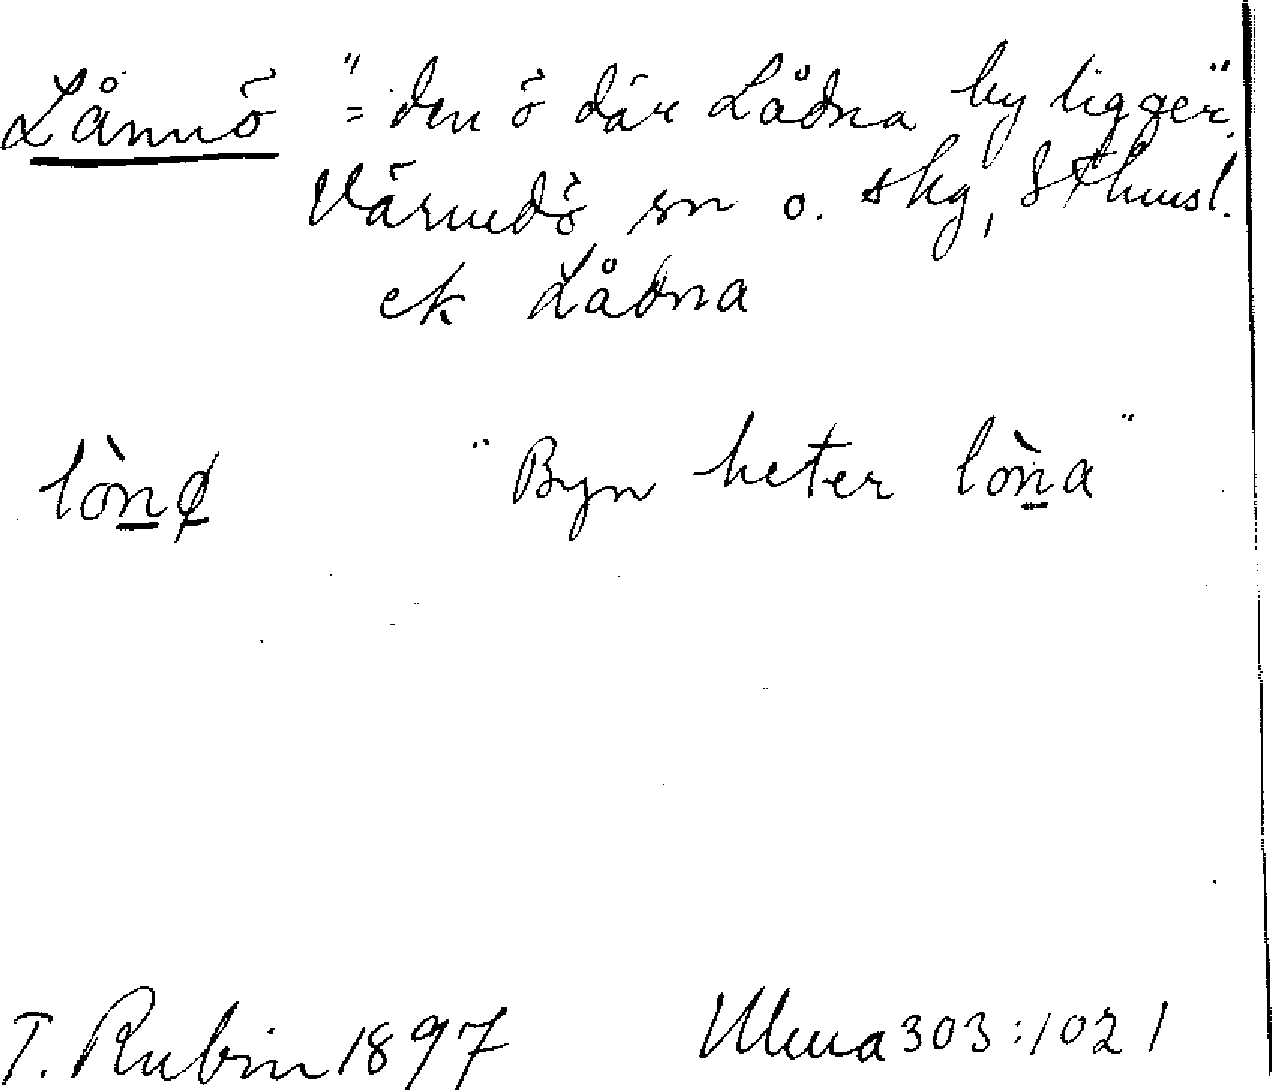 Lånnö "= den ö där Lådna by ligger".
Värmdö sn o. skg, Sthmsl.
ek Lådna
lòn̲ø̲ "Byn heter lòn̲a"
T. Rubin 1897 Ulma 303:1021